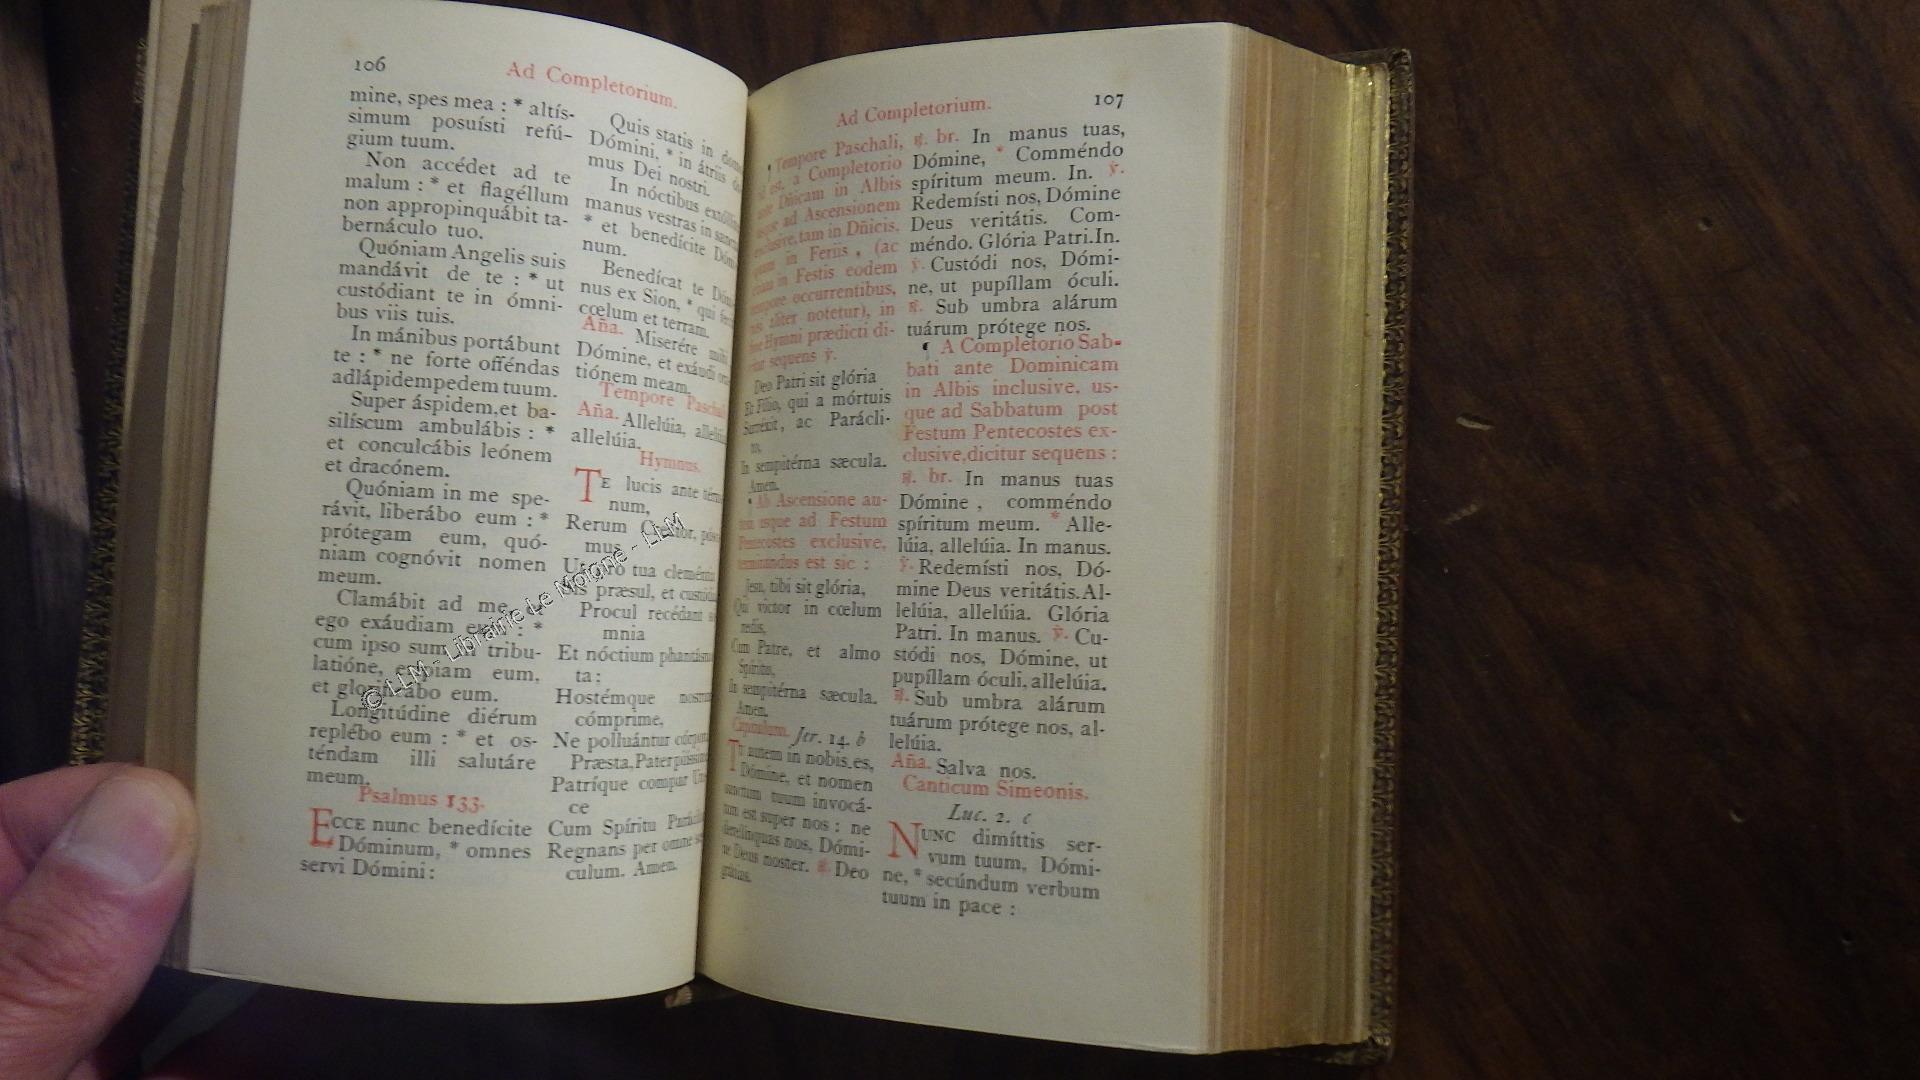 106
Ad Completorium.
mine, spes mea : * altís-
simum posuísti refú-
gium tuum.
Non accédet ad te
malum : * et flagéllum
non appropinquábit ta-
bernáculo tuo.
Quóniam Angelis suis
mandávit de te : * ut
custódiant te in ómni-
bus viis tuis.
In mánibus portábunt
te : * ne forte offéndas
ad lápidem pedem tuum.
Super áspidem, et ba-
silíscum ambulábis : *
et conculcábis leónem
et dracónem.
Quóniam in me spe-
rávit, liberábo eum : *
prótegam eum, quó-
niam cognóvit nomen
meum.
Clamábit ad me, et
ego exáudiam eum : *
cum ipso sum in tribu-
latióne, erípiam eum,
et glorificábo eum.
Longitúdine diérum
replébo eum : * et os-
téndam illi salutáre
meum.
Psalmus 133.
ECCE nunc benedícite
Dóminum, * omnes
servi Dómini :
Quis statis in
Dómini, * in átriis
mus Dei nostri.
In nóctibus
manus vestras in
* et benedícite
num.
Benedícat te
nus ex Sion, * qui
cœlum et terram.
Aña. Miserére
Dómine, et exáudi
tiónem meam.
Tempore
Aña. Allelúia,
allelúia.
Hymnus.
TE lucis ante
num,
Rerum Creátor,
mus
Ut pro tua
Sis præsul, et
Procul recédant
mnia
Et nóctium
ta :
Hostémque
cómprime,
Ne polluántur
Præsta, Pater piíssime
Patríque compar
ce
Cum Spíritu
Regnans per omne
culum. Amen.
Ad Completorium.
107
¶ Tempore Paschali,
id est, a Completorio
ante Dñicam in Albis
usque ad Ascensionem
exclusive, tam in Dñicis,
quam in Feriis, (ac
etiam in Festis eodem
tempore occurrentibus,
nisi aliter notetur), in
fine Hymni prædicti di-
citur sequens ℣.
Deo Patri sit glória
Et Fílio, qui a mórtuis
Surréxit, ac Parácli-
to,
In sempitérna sæcula.
Amen.
¶ Ab Ascensione au-
tem usque ad Festum
Pentecostes exclusive,
terminandus est sic :
Jesu, tibi sit glória,
Qui victor in cœlum
redis,
Cum Patre, et almo
Spíritu,
In sempitérna sæcula.
Amen.
Capitulum. Jer. 14. b
TU autem in nobis es,
Dómine, et nomen
sanctum tuum invocá-
tum est super nos : ne
derelínquas nos, Dómi-
ne Deus noster. ℟. Deo
grátias.
℟. br. In manus tuas,
Dómine, * Comméndo
spíritum meum. In. ℣.
Redemísti nos, Dómine
Deus veritátis. Com-
méndo. Glória Patri. In.
℣. Custódi nos, Dómi-
ne, ut pupíllam óculi.
℟. Sub umbra alárum
tuárum prótege nos.
¶ A Completorio Sab-
bati ante Dominicam
in Albis inclusive, us-
que ad Sabbatum post
Festum Pentecostes ex-
clusive, dicitur sequens :
℟. br. In manus tuas
Dómine, comméndo
spíritum meum. * Alle-
lúia, allelúia. In manus.
℣. Redemísti nos, Dó-
mine Deus veritátis. Al-
lelúia, allelúia. Glória
Patri. In manus. ℣. Cu-
stódi nos, Dómine, ut
pupíllam óculi, allelúia.
℟. Sub umbra alárum
tuárum prótege nos, al-
lelúia.
Aña. Salva nos.
Canticum Simeonis.
Luc. 2. c
NUNC dimíttis ser-
vum tuum, Dómi-
ne, * secúndum verbum
tuum in pace :
© LLM - Librairie Le Moigne - LLM